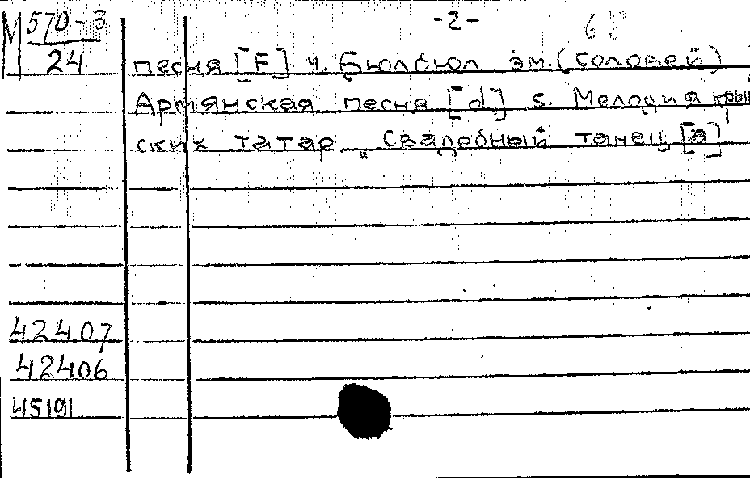 М 570-3
24
-2-
песня [F] 4. Бюлбюл эм. (Соловей)
Армянская песня [d] 5. Мелодия крым
ских татар „Свадебный танец [a]
42407
42406
45191